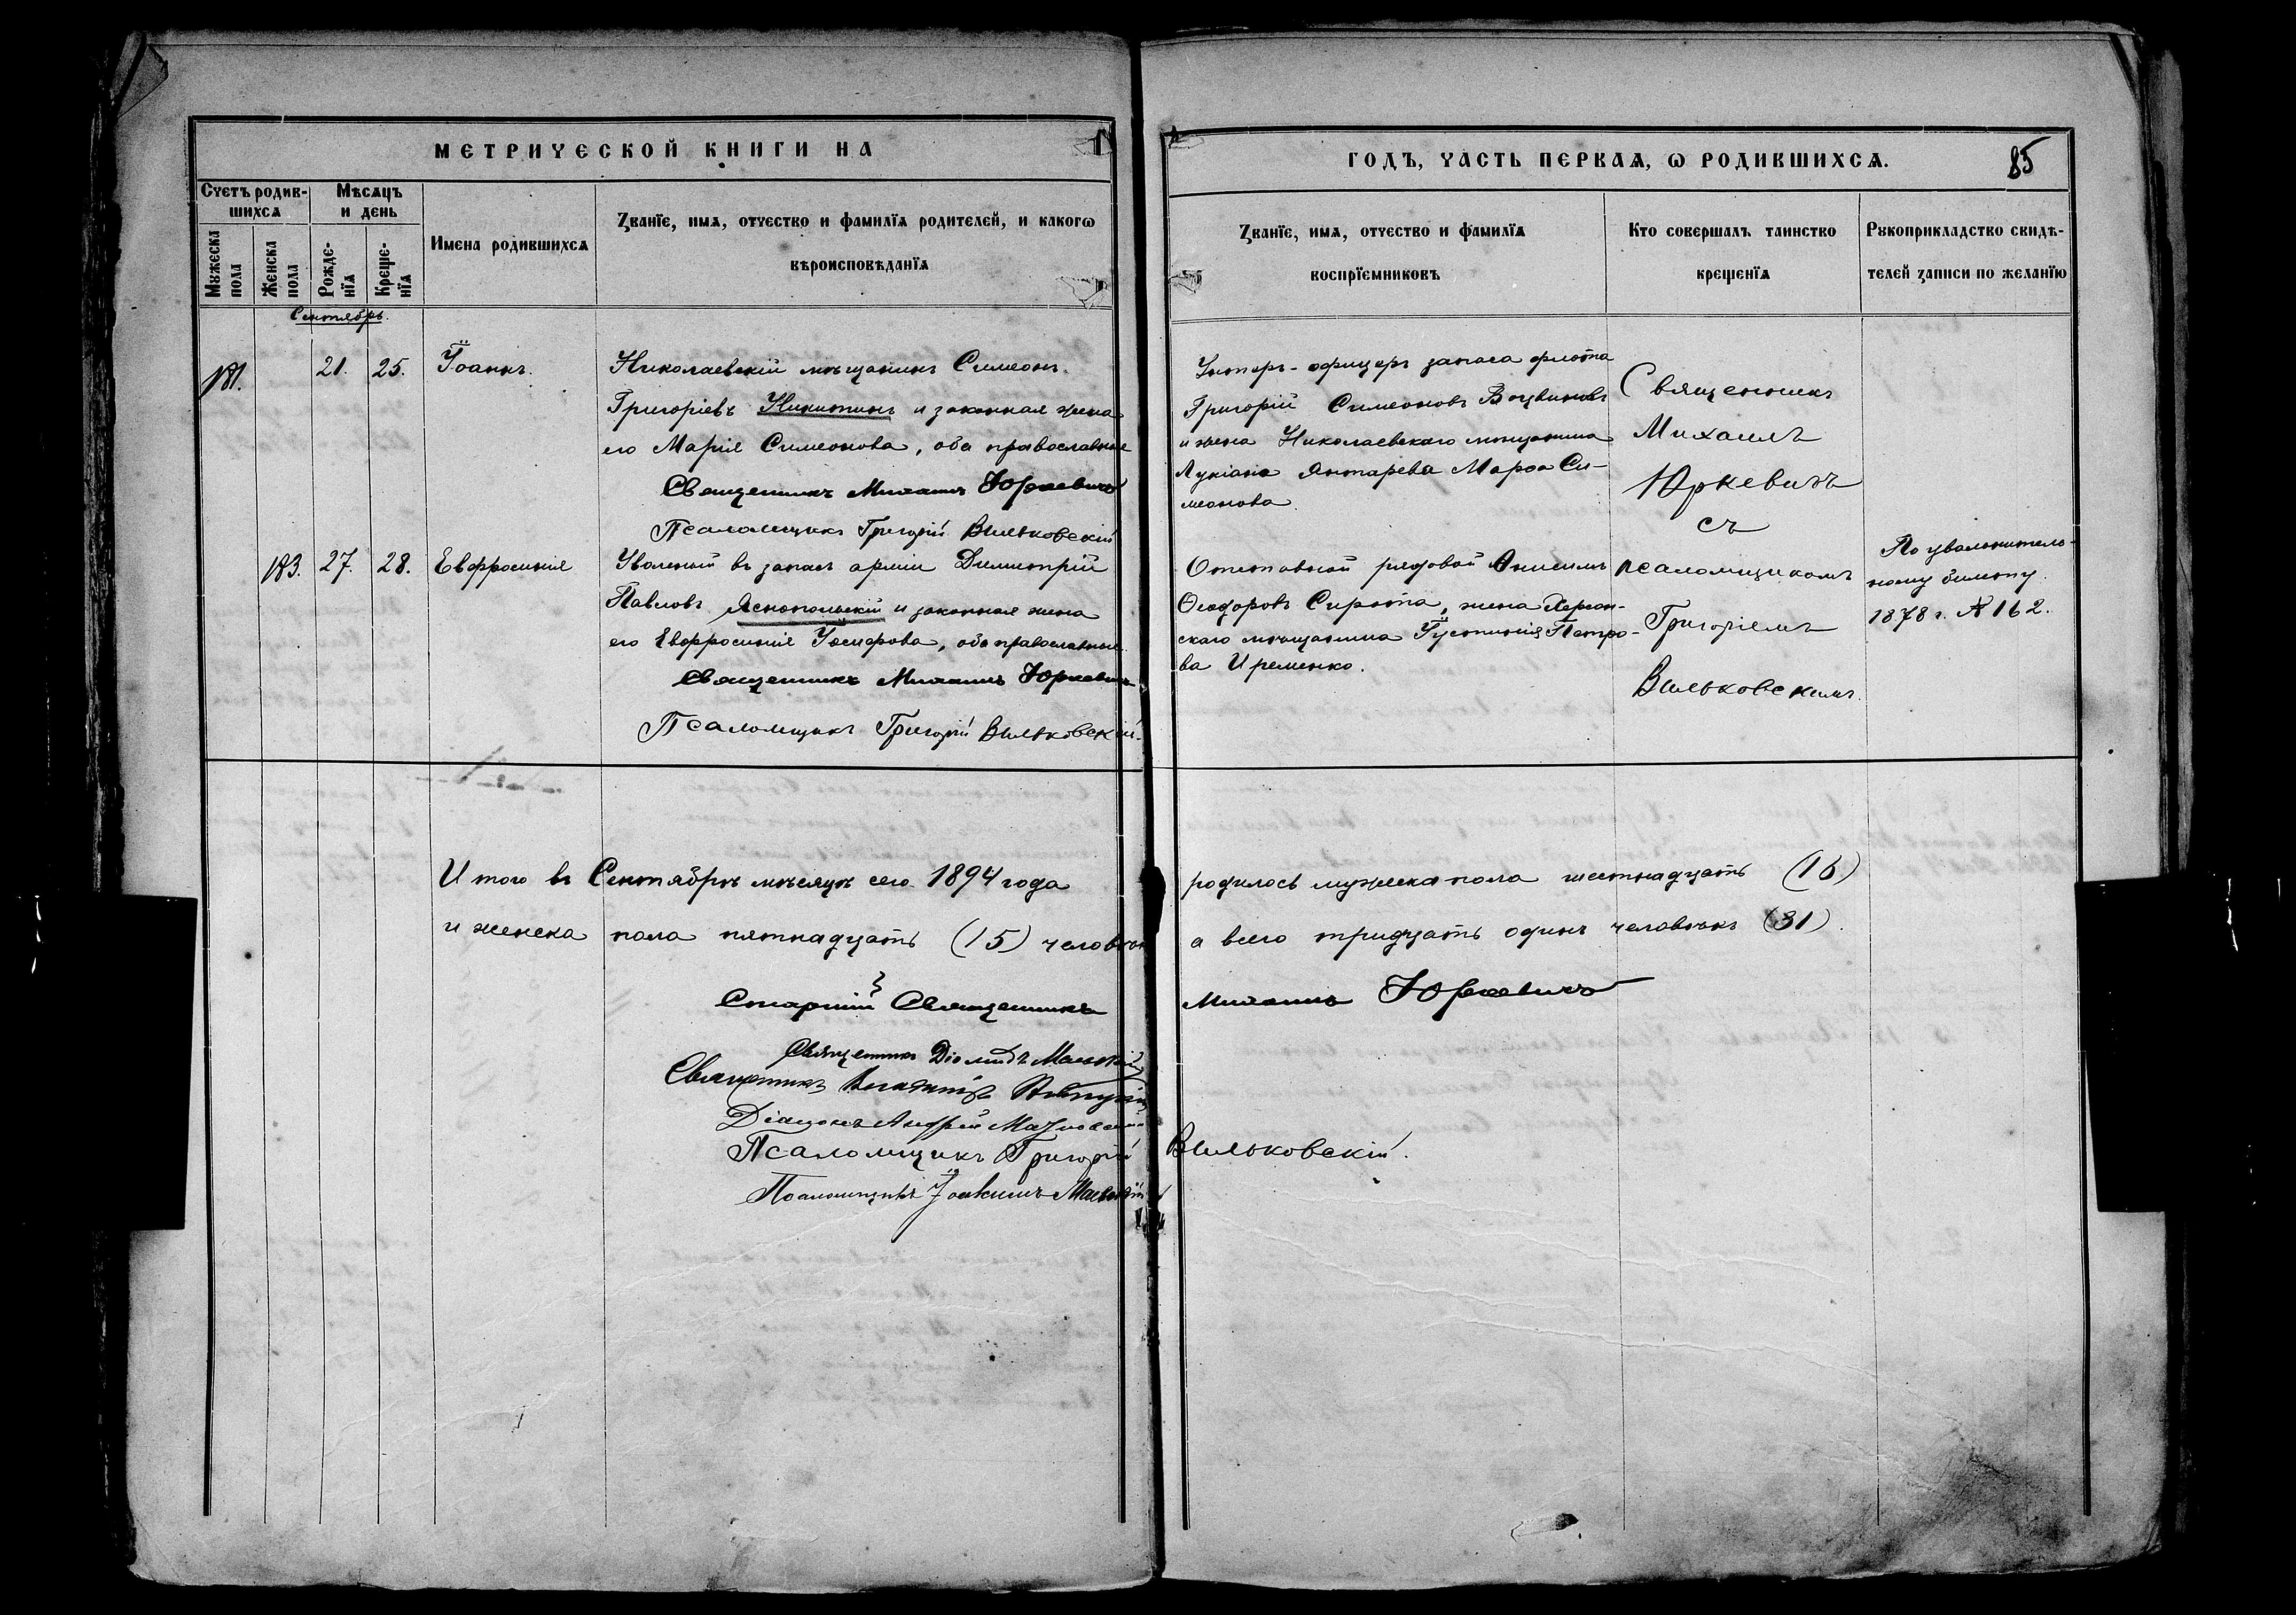 МЕТРИЧЕСКОЙ КНИГИ НА
Счетъ родив-
шихся
Мѣсяцъ
и день
Мужеска
пола
Женска
пола
Рожде-
нїя
Креще-
нїя
Имена родившихся
Званїе, имя, отчество и фамилїя родителей, и какогѡ
вѣроисповѣданїя
Сентябрь.
181.
21.
25.
Іоаннъ.
Николаевскій мѣщанинъ Симеонъ
Григоріевъ Никитинъ и законная жена
его Марія Симеонова, оба православные
Священникъ Михаилъ Юркевичъ
Псаломщикъ Григорій Вильковскій
183.
27.
28.
Евфросинія
Уволеный въ запасъ арміи Димитрій
Павловъ Яснопольскій и законная жена
его Евфросинія Іосифова, оба православные.
Священникъ Михаилъ Юркевичъ
Псаломщикъ Григорій Вильковскій.
Итого въ Сентябрѣ мѣсяцѣ сего 1894 года
и женска пола пятнадцать (15) человѣкъ
Старшій Священникъ
Священникъ Діомидъ
Священникъ
Діаконъ Андрей
Псаломщикъ Григорій
Псаломщикъ Іоакимъ
ГОДЪ, ЧАСТЬ ПЕРВАЯ, Ѡ РОДИВШИХСЯ.
85
Званїе, имя, отчество и фамилїя
воспрїемниковъ
Кто совершалъ таинство
крещенїя
Рукоприкладство свидѣ-
телей записи по желанїю
Унтеръ-офицеръ запаса флота
Григорій Симеоновъ
и жена Николаевскаго мѣщанина
Лукіана Янтарева Марѳа Си-
меонова.
Священникъ
Михаилъ
Юркевичъ
съ
псаломщикомъ
Григоріемъ
Вильковскимъ.
Отставной рядовой Анисимъ
Ѳеодоровъ Сирота, жена Херсон-
скаго мѣщанина Іустинія Петро-
ва Иременко.
По увольнитель-
ному билету
1878 г. № 162.
родилось мужеска пола шестнадцать (16)
а всего тридцать одинъ человѣкъ (31).
Михаилъ Юркевичъ
Вильковскій.